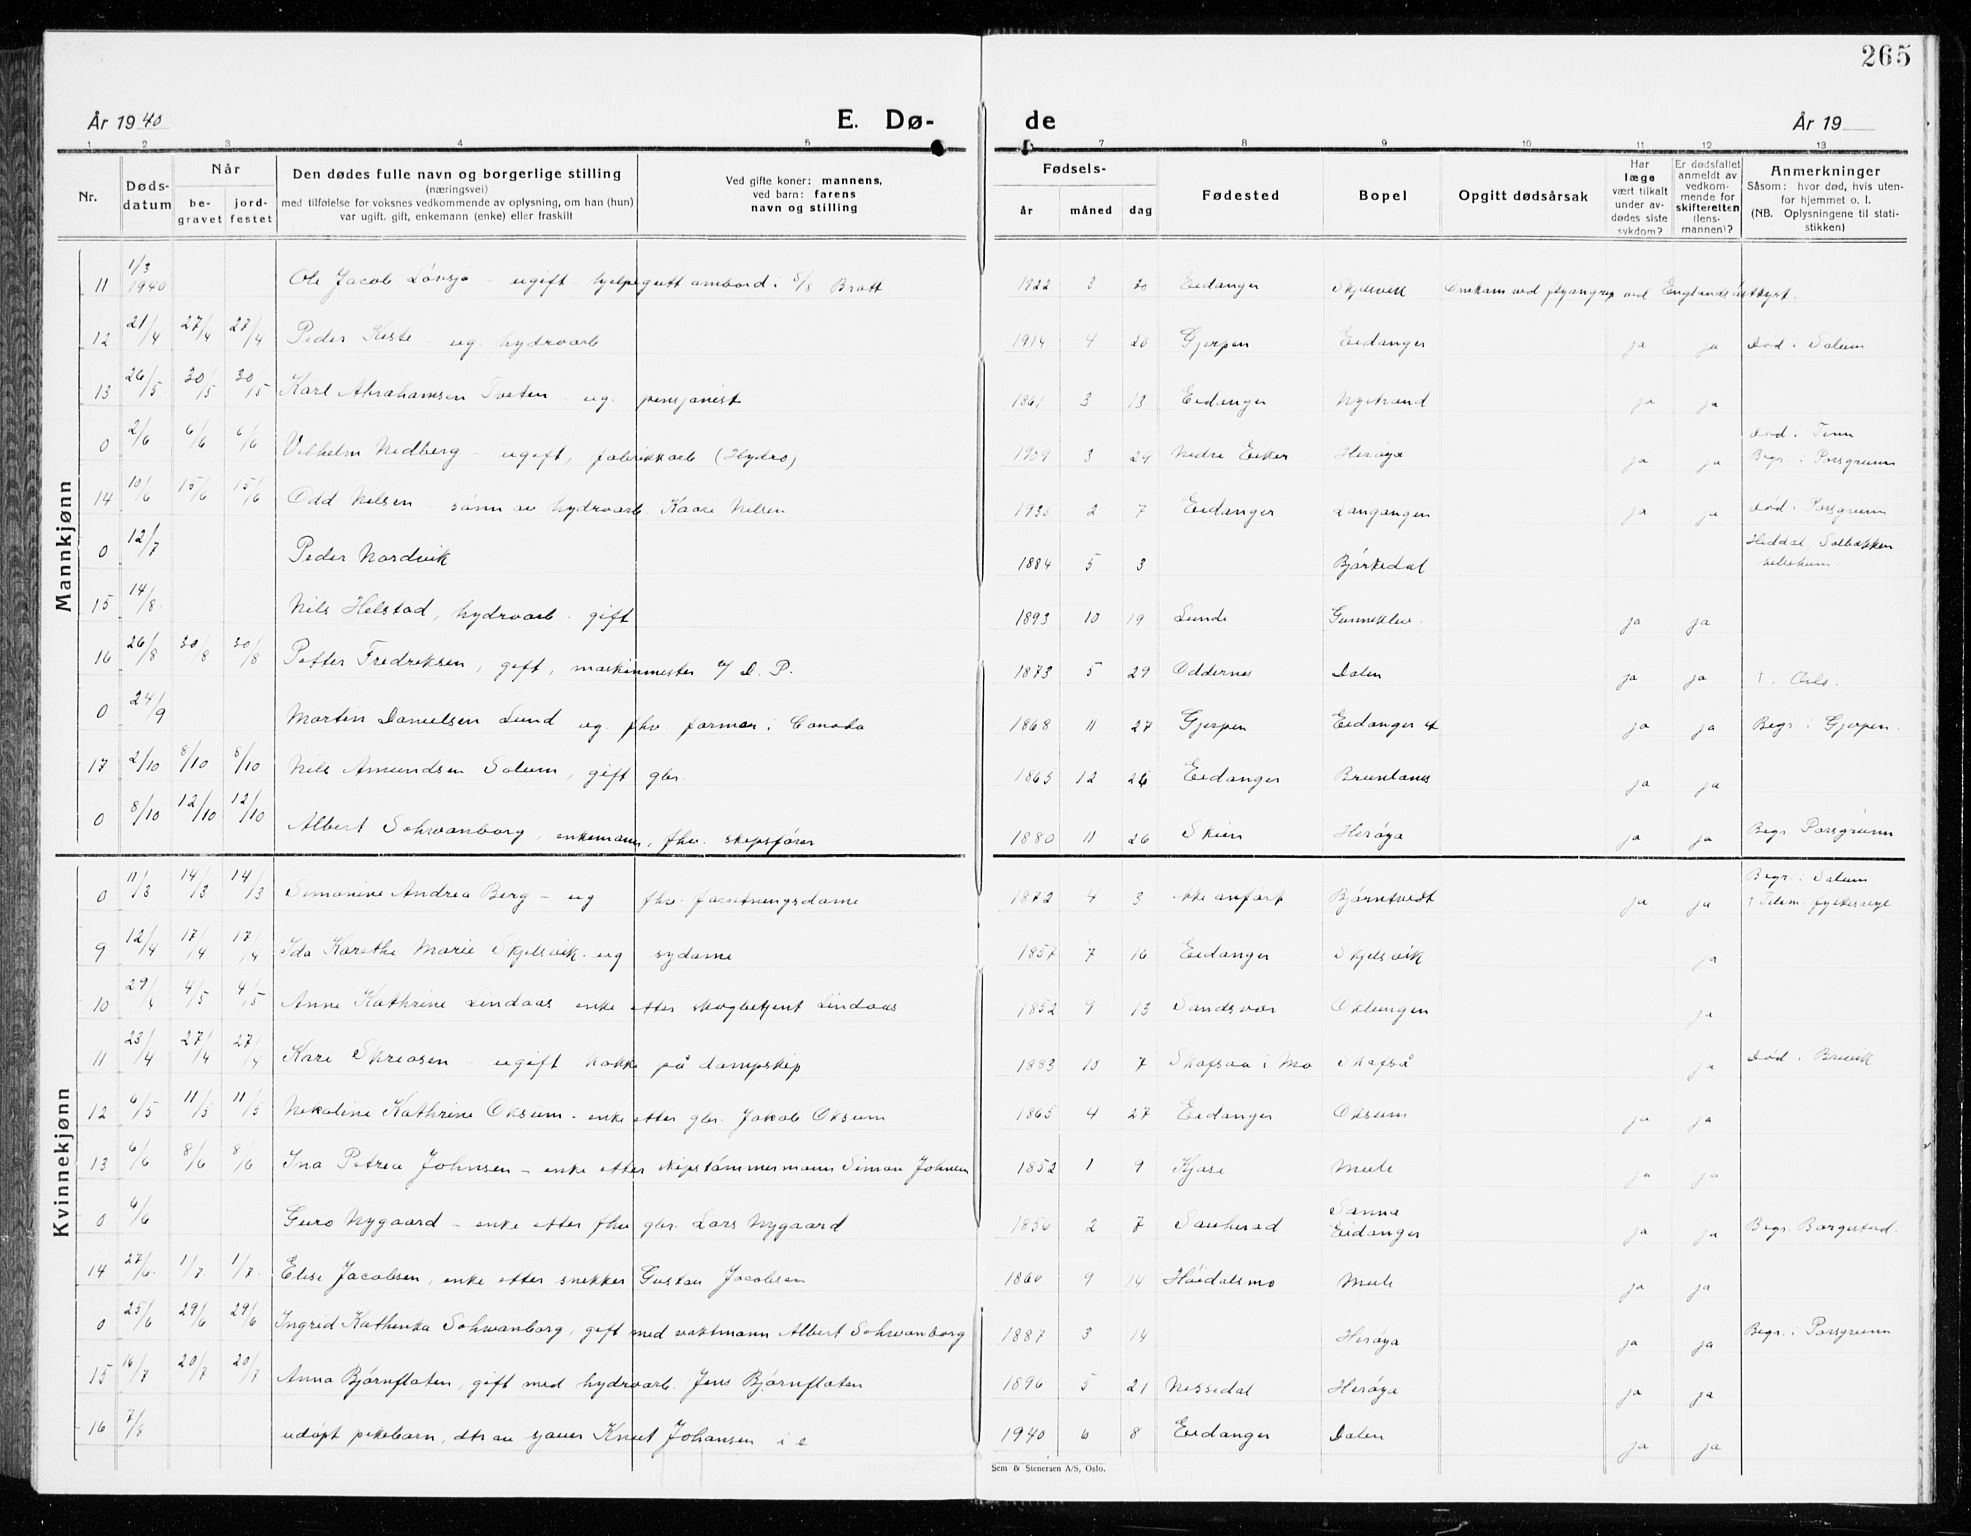 265
År 1940 E. Dø- de År 19
1 2 3 4 5 7 8 9 10 11 12 13
Nr.
Dødsdatum
Når
begravet
jordfestet
Den dødes fulle navn og borgerlige stilling
(næringsvei)
med tilføielse for voksnes vedkommende av oplysning, om han (hun)
var ugift, gift, enkemann (enke) eller fraskilt
Ved gifte koner: mannens,
ved barn: farens
navn og stilling
Fødsels-
år måned dag
Fødested
Bopel
Opgitt dødsårsak
Har
læge
vært tilkalt
under av-
dødes siste
sykdom?
Er dødsfallet
anmeldt av
vedkom-
mende for
skifteretten
(lens-
mannen)?
Anmerkninger
Såsom: hvor død, hvis uten-
for hjemmet o. l.
(NB. Oplysningene til stati-
stikken)
Mannkjønn
11 1/3 1940 Ole Jacob Lønsjø - ugift - hjelpegutt ombord i S/S Bratt 1922 3 20 Eidanger Skjelsvik Omkom ved flyangrep ved Englands østkyst.
12 21/4 27/4 27/4 Peder Kiste - ug. hydroarb 1914 4 20 Gjerpen Eidanger ja ja Død i Solum
13 26/5 30/5 30/5 Karl Abrahamsen Tveten - ug. pensjonist 1861 3 13 Eidanger Nystrand ja ja
0 2/6 6/6 6/6 Vilhelm Nedberg - ugift, fabrikkarb (Hydro) 1909 3 24 Nedre Eiker Herøya ja ja Død i Tinn Begr. i Porsgrunn
14 10/6 15/6 15/6 Odd Nilsen - sønn av hydroarb. Kaare Nilsen 1935 2 7 Eidanger Langangen ja ja Død i Porsgrunn
0 12/7 Peder Nordvik 1884 5 3 Bjørkedal Heddal, Solbakken
15 14/8 Nils Helstad, hydroarb. gift 1893 10 19 Lunde Gunneklev. ja ja
16 26/8 30/8 30/8 Petter Fredriksen, gift, maskinmester D. P. 1873 5 29 Oddernes Dalen ja ja † i Oslo.
0 24/9 Martin Danielsen Lund ug. fhv. farmer i Canada 1868 11 27 Gjerpen Eidanger ja ja Begr. i Gjerpen.
17 2/10 8/10 8/10 Nils Amundsen Solum, gift gbr. 1865 12 26 Eidanger Brunlanes ja ja
0 8/10 12/10 12/10 Albert Schwanborg, enkemann, fhv. skipsfører 1880 11 26 Skien Herøya ja ja Begr Porsgrunn
Kvinnekjønn
0 11/3 14/3 14/3 Simonine Andrea Berg - ug fhv. forretningsdame 1872 4 3 ikke anført Bjørntvedt ja ja Begr. i Solum † Telem. fylkessyk
9 12/4 17/4 17/4 Ida Karethe Marie Skjelsvik. ug sydame 1857 7 16 Eidanger Skjelsvik ja
10 29/4 4/5 4/5 Anne Kathrine Lindaas enke etter skogbetjent Lindaas 1852 9 13 Sandsvær Oklungen ja
11 23/4 27/4 27/4 Kari Skreosen - ugift kokke på dampskip 1883 10 7 Skafsaa i Mo Skafså ja Død i Brevik
12 6/5 11/5 11/5 Nikoline Kathrine Oksum - enke etter gbr. Jakob Oksum 1865 4 27 Eidanger Oksum ja ja
13 6/6 8/6 8/6 Ina Petrea Johnsen - enke etter skipstømmermann Simon Johnsen 1852 1 9 Kjose Mule ja ja
0 6/6 Guro Nygaard - enke etter fhv gbr. Lars Nygaard 1856 2 7 Sauherad Sanna Eidanger ja ja Begr. Borgestad.
14 27/6 1/7 1/7 Elise Jacobsen, enke etter snekker Gustav Jacobsen 1860 9 14 Høidalsmo Mule ja ja
0 25/6 29/6 29/6 Ingrid Kathinka Schwanborg, gift med vaktmann Albert Schwanborg 1887 3 14 Herøya ja ja Begr. i Porsgrunn
15 16/7 20/7 20/7 Anna Bjørnflaten, gift med hydroarb. Jens Bjørnflaten 1896 5 21 Nissedal Herøya ja ja
16 7/8 udøpt pikebarn, dtr av Knut Johansen 1940 6 8 Eidanger Dalen ja ja
Sem & Stenersen A/S, Oslo.